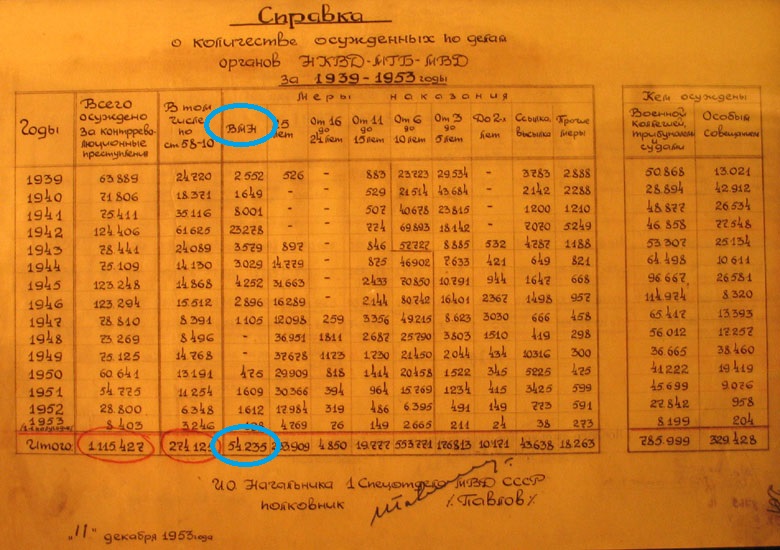 Справка
о количестве осужденных по делам
органов НКВД-МГБ-МВД
за 1939-1953 годы
Годы Всего осуждено за контрреволюционные преступления В том числе по ст 58-10 Меры наказания Кем осуждены
ВМН 25 лет От 16 до 24 лет От 11 до 15 лет От 6 до 10 лет От 3 до 5 лет До 2-х лет Ссылка высылка Прочие меры Военной коллегией, трибуналом судами Особым совещанием
1939 63889 24720 2552 526 - 883 23723 29534 - 3783 2888 50868 13.021
1940 71806 18371 1649 - - 529 21514 43684 - 2142 2288 28.894 42.912
1941 75411 35116 8001 - - 507 40678 23815 - 1200 1210 48.877 26.534
1942 124.406 61.625 23278 - - 774 69893 18142 - 7070 5249 46.858 77.548
1943 78.441 24089 3579 897 - 846 57727 8885 532 4787 1188 53.307 25.134
1944 75.109 14.130 3029 14.779 - 875 46902 7633 421 649 821 64.498 10.611
1945 123.248 14.868 4252 31663 - 2433 70850 10.791 944 1647 668 96.667 26.581
1946 123.294 15.512 2896 16289 - 2144 80742 16401 2367 1498 957 114.974 8.320
1947 78.810 8391 1105 12098 259 3356 49215 8.623 3030 666 458 65.417 13.393
1948 73.269 8496 - 36951 1811 2687 25790 3803 1510 419 298 56.012 17.257
1949 75.125 14.768 - 37678 1173 1730 21450 2044 434 10316 300 36.665 38.460
1950 60.641 13191 475 29909 818 1414 20458 1522 345 5225 475 41222 19.419
1951 54.775 11254 1609 30366 394 964 15769 1234 415 3425 599 45.699 9.076
1952 28.800 6348 1612 17984 319 486 6395 491 149 773 591 27.842 958
1953 8.403 3.246 4769 76 149 2665 211 24 38 273 8199 204
Итого 1.115.427 54.235 4850 19.777 553771 176813 10.171 43638 18.263 785.999 329.428
И.О Начальника 1 Спецотдела МВД СССР
полковник /Павлов/
"11" декабря 1953 года